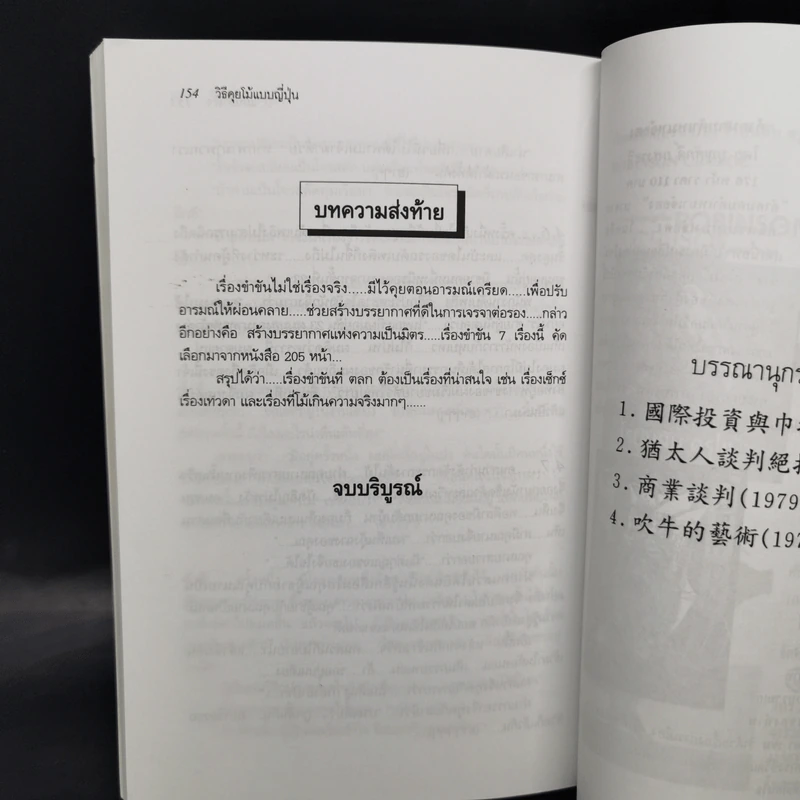 154 วิธีคุยโม้แบบญี่ปุ่น
บทความส่งท้าย
เรื่องขำขันไม่ใช่เรื่องจริง.....มีไว้คุยตอนอารมณ์เครียด.....เพื่อปรับ
อารมณ์ให้ผ่อนคลาย.....ช่วยสร้างบรรยากาศที่ดีในการเจรจาต่อรอง.....กล่าว
อีกอย่างคือ สร้างบรรยากาศแห่งความเป็นมิตร.....เรื่องขำขัน 7 เรื่องนี้ คัด
เลือกมาจากหนังสือ 205 หน้า...
สรุปได้ว่า.....เรื่องขำขันที่ ตลก ต้องเป็นเรื่องที่น่าสนใจ เช่น เรื่องเซ็กซ์
เรื่องเทวดา และเรื่องที่โม้เกินความจริงมากๆ......
จบบริบูรณ์
บรรณานุกร
1. 國際投資與巾
2. 猶太人談判絕
3. 商業談判(1979
4. 吹牛的藝術(19